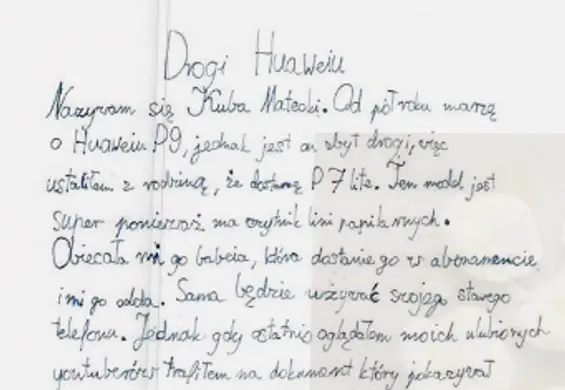 Drogi Huaweiu
Nazywam się Kuba Małecki. Od pół roku marzę
o Huaweiu P9, jednak jest on zbyt drogi, więc
ustaliłem z rodziną, że dostanę P7 lite. Ten model jest
super ponieważ ma czytnik lini papilarnych.
Obiecała mi go babcia, która dostanie go w abonamencie
i mi go odda. Sama będzie używać swojego starego
telefonu. Jednak gdy ostatnio oglądałem moich ulubionych
youtuberów trafiłem na dokument który pokazywał